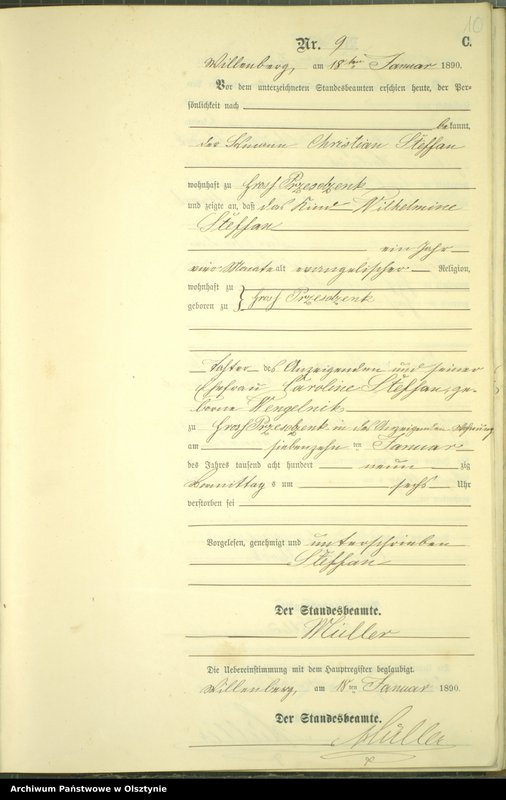 10
Nr. 9 C.
Willenberg, am 18ten Januar 1890.
Vor dem unterzeichneten Standesbeamten erschien heute, der Per-
sönlichkeit nach
bekannt,
der Christian Steffan
wohnhaft zu Groß Przesdzenk
und zeigte an, daß das Kind Wilhelmine
Steffan
ein Jahr
vier Monate alt evangelischer Religion,
wohnhaft zu
geboren zu Groß Przesdzenk
Tochter des Anzeigenden und seiner
Ehefrau Caroline Steffan, ge-
borne Wengelnik
zu Groß Przesdzenk in des Anzeigenden Wohnung
am siebenzehn ten Januar
des Jahres tausend acht hundert neun zig
Vormittag s um sechs Uhr
verstorben sei
Vorgelesen, genehmigt und unterschrieben
Steffan
Der Standesbeamte.
Müller
Die Uebereinstimmung mit dem Hauptregister beglaubigt.
Willenberg, am 18ten Januar 1890.
Der Standesbeamte.
Müller
Archiwum Państwowe w Olsztynie